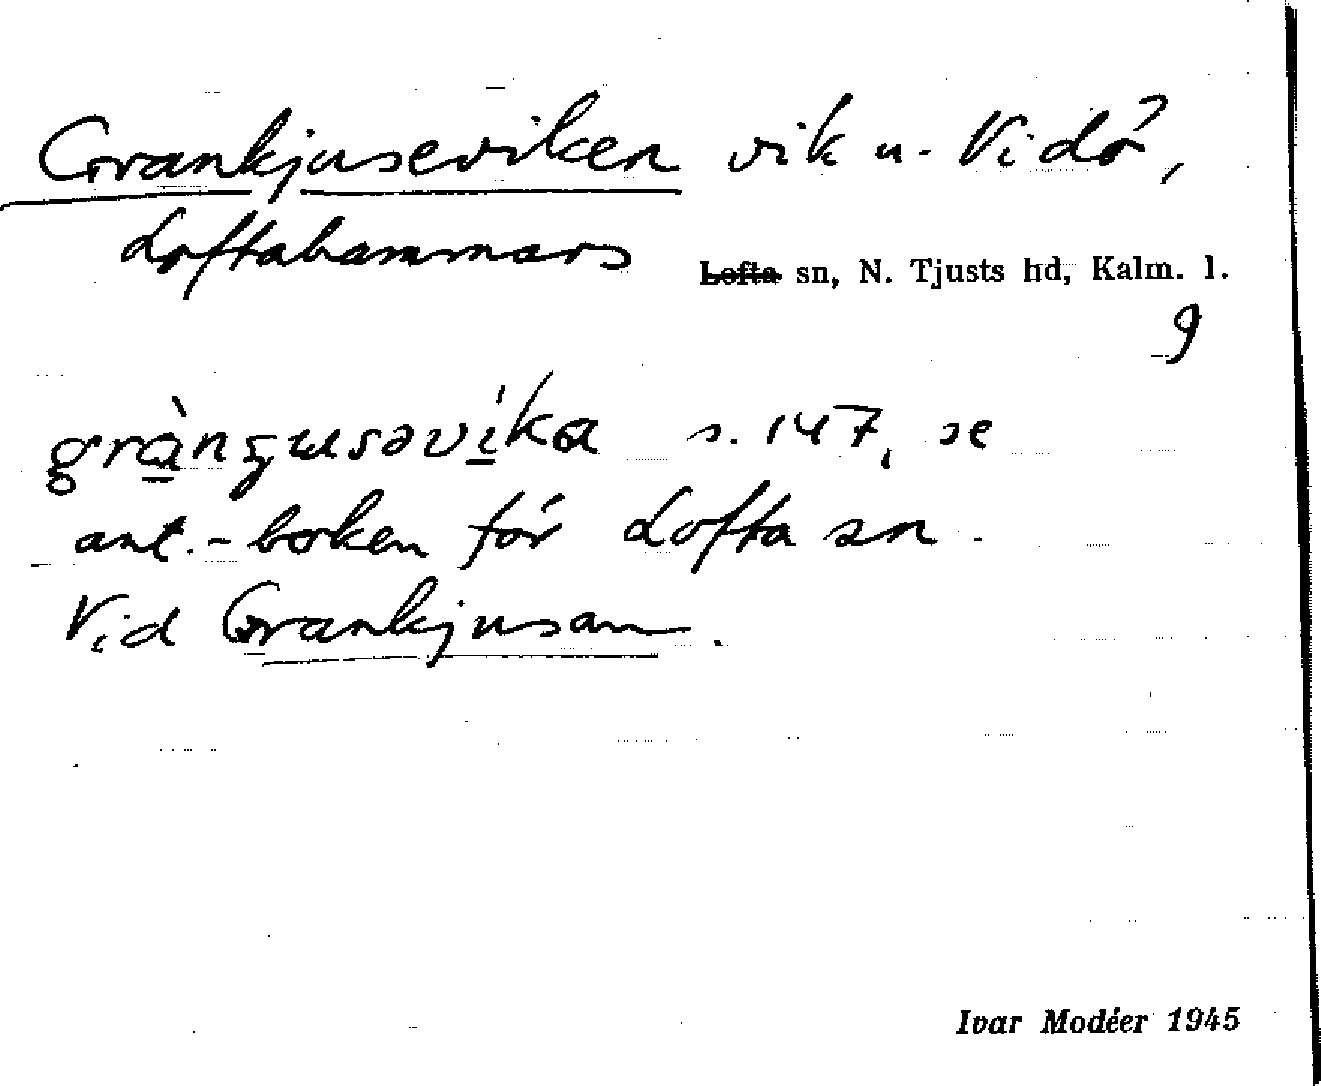 Grankjuseviken vik u. Vidö,
Loftahammars ~~Lofta~~ sn, N. Tjusts hd, Kalm. l.
9
s. 147, se
ant.-boken för Lofta sn.
Vid Grankjusan.
Ivar Modéer 1945